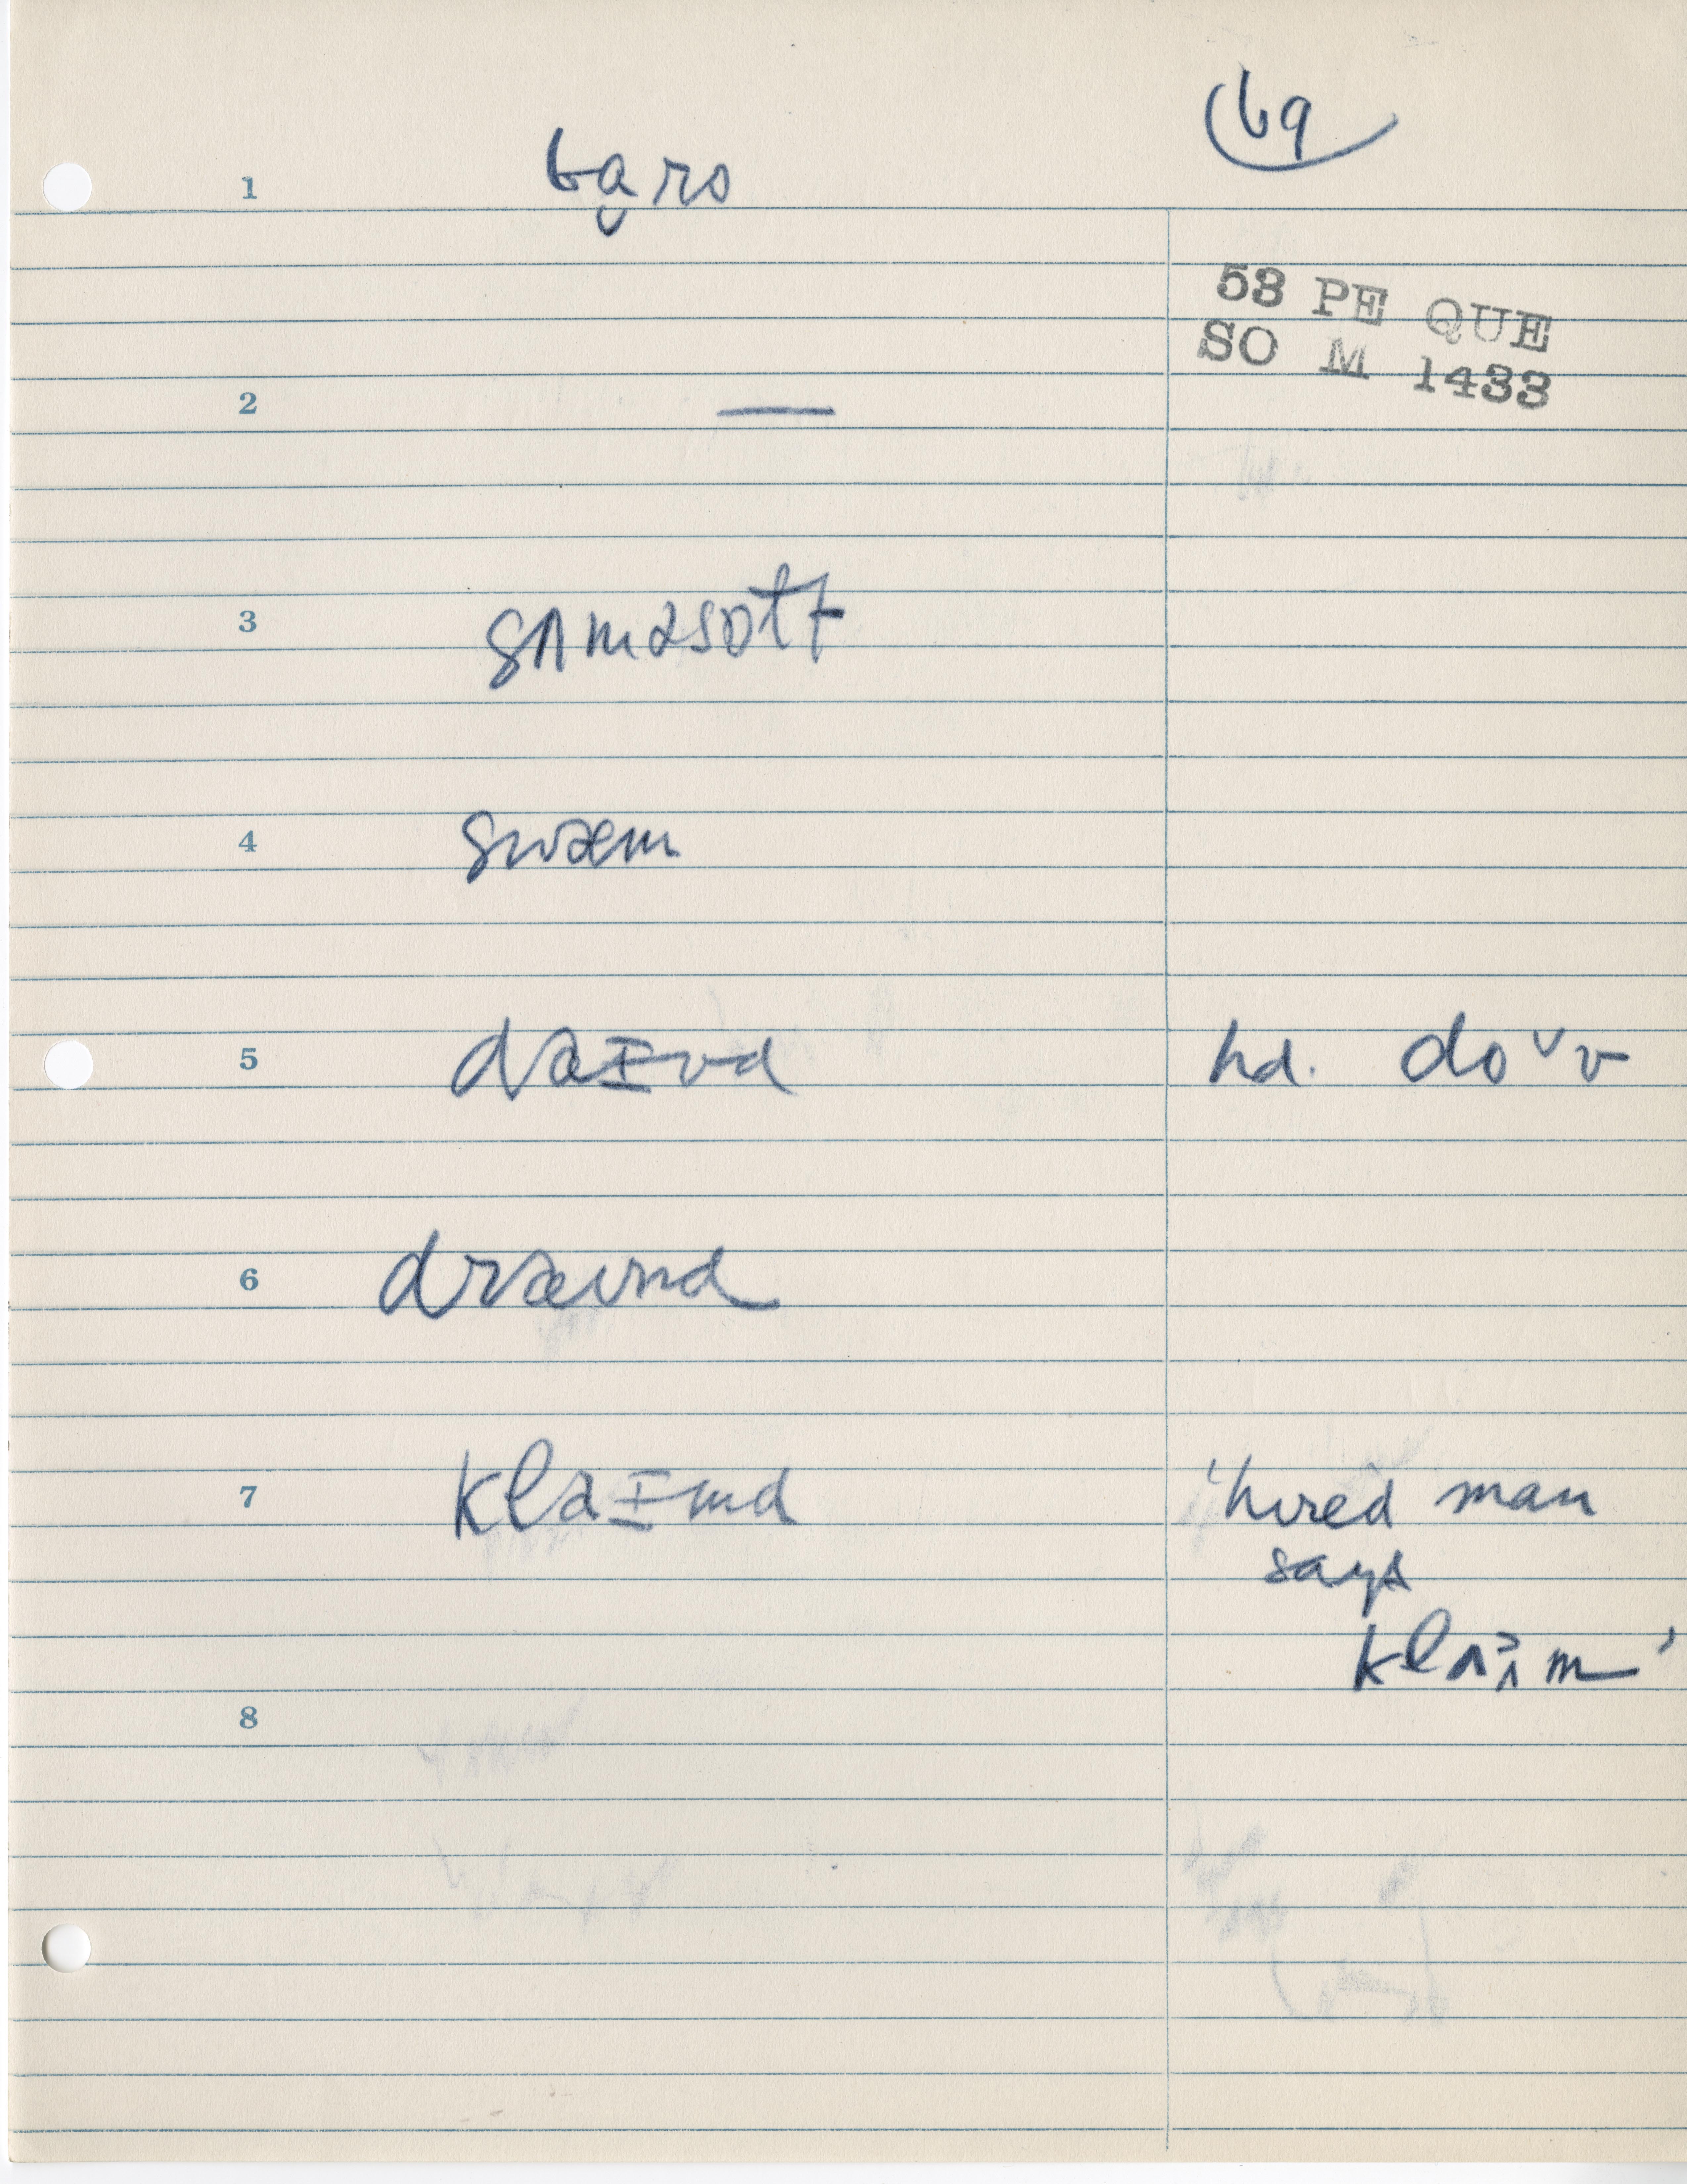 69
1 ba̬rs
53 PE QUE
SO M 1433
2 —
3 sʌməsɒtɫ
4 swæm
5 daɪvd hd. doᵛv
6 dræʊnd
7 klaɪmd 'hired man
says
klʌɪm'
8